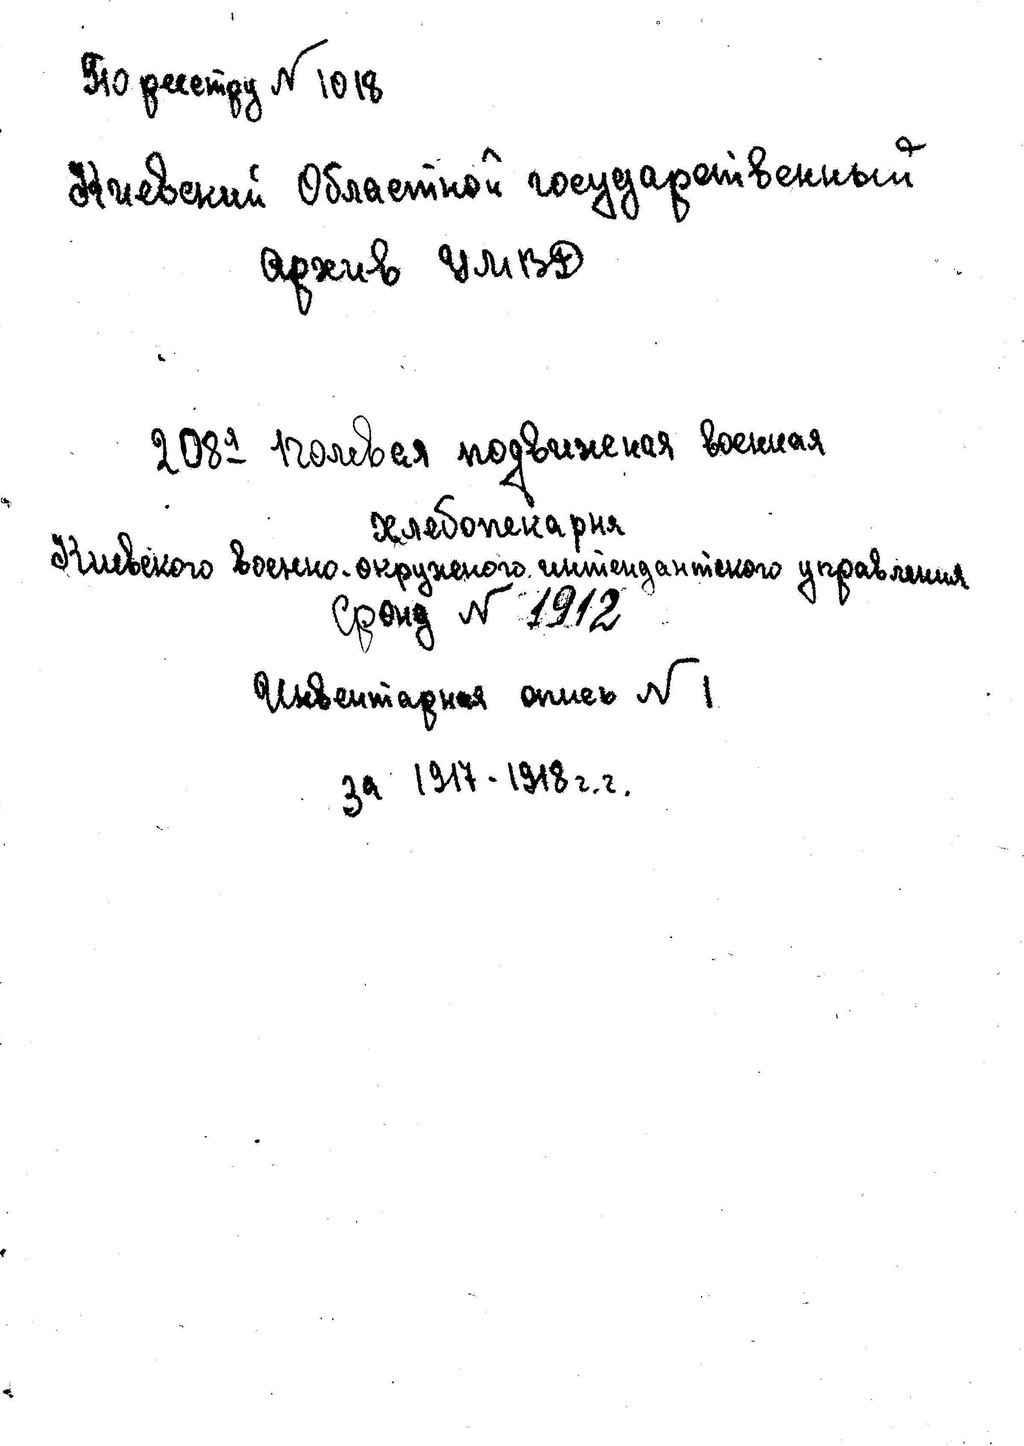 По реестру N 1018
Киевский Областной государственный
архив УМВД
208я полевая подвижная военная
хлебопекарня
Киевского военно-окружного интендантского управления
Фонд N 1912
Инвентарная опись N 1
за 1917-1918 г.г.